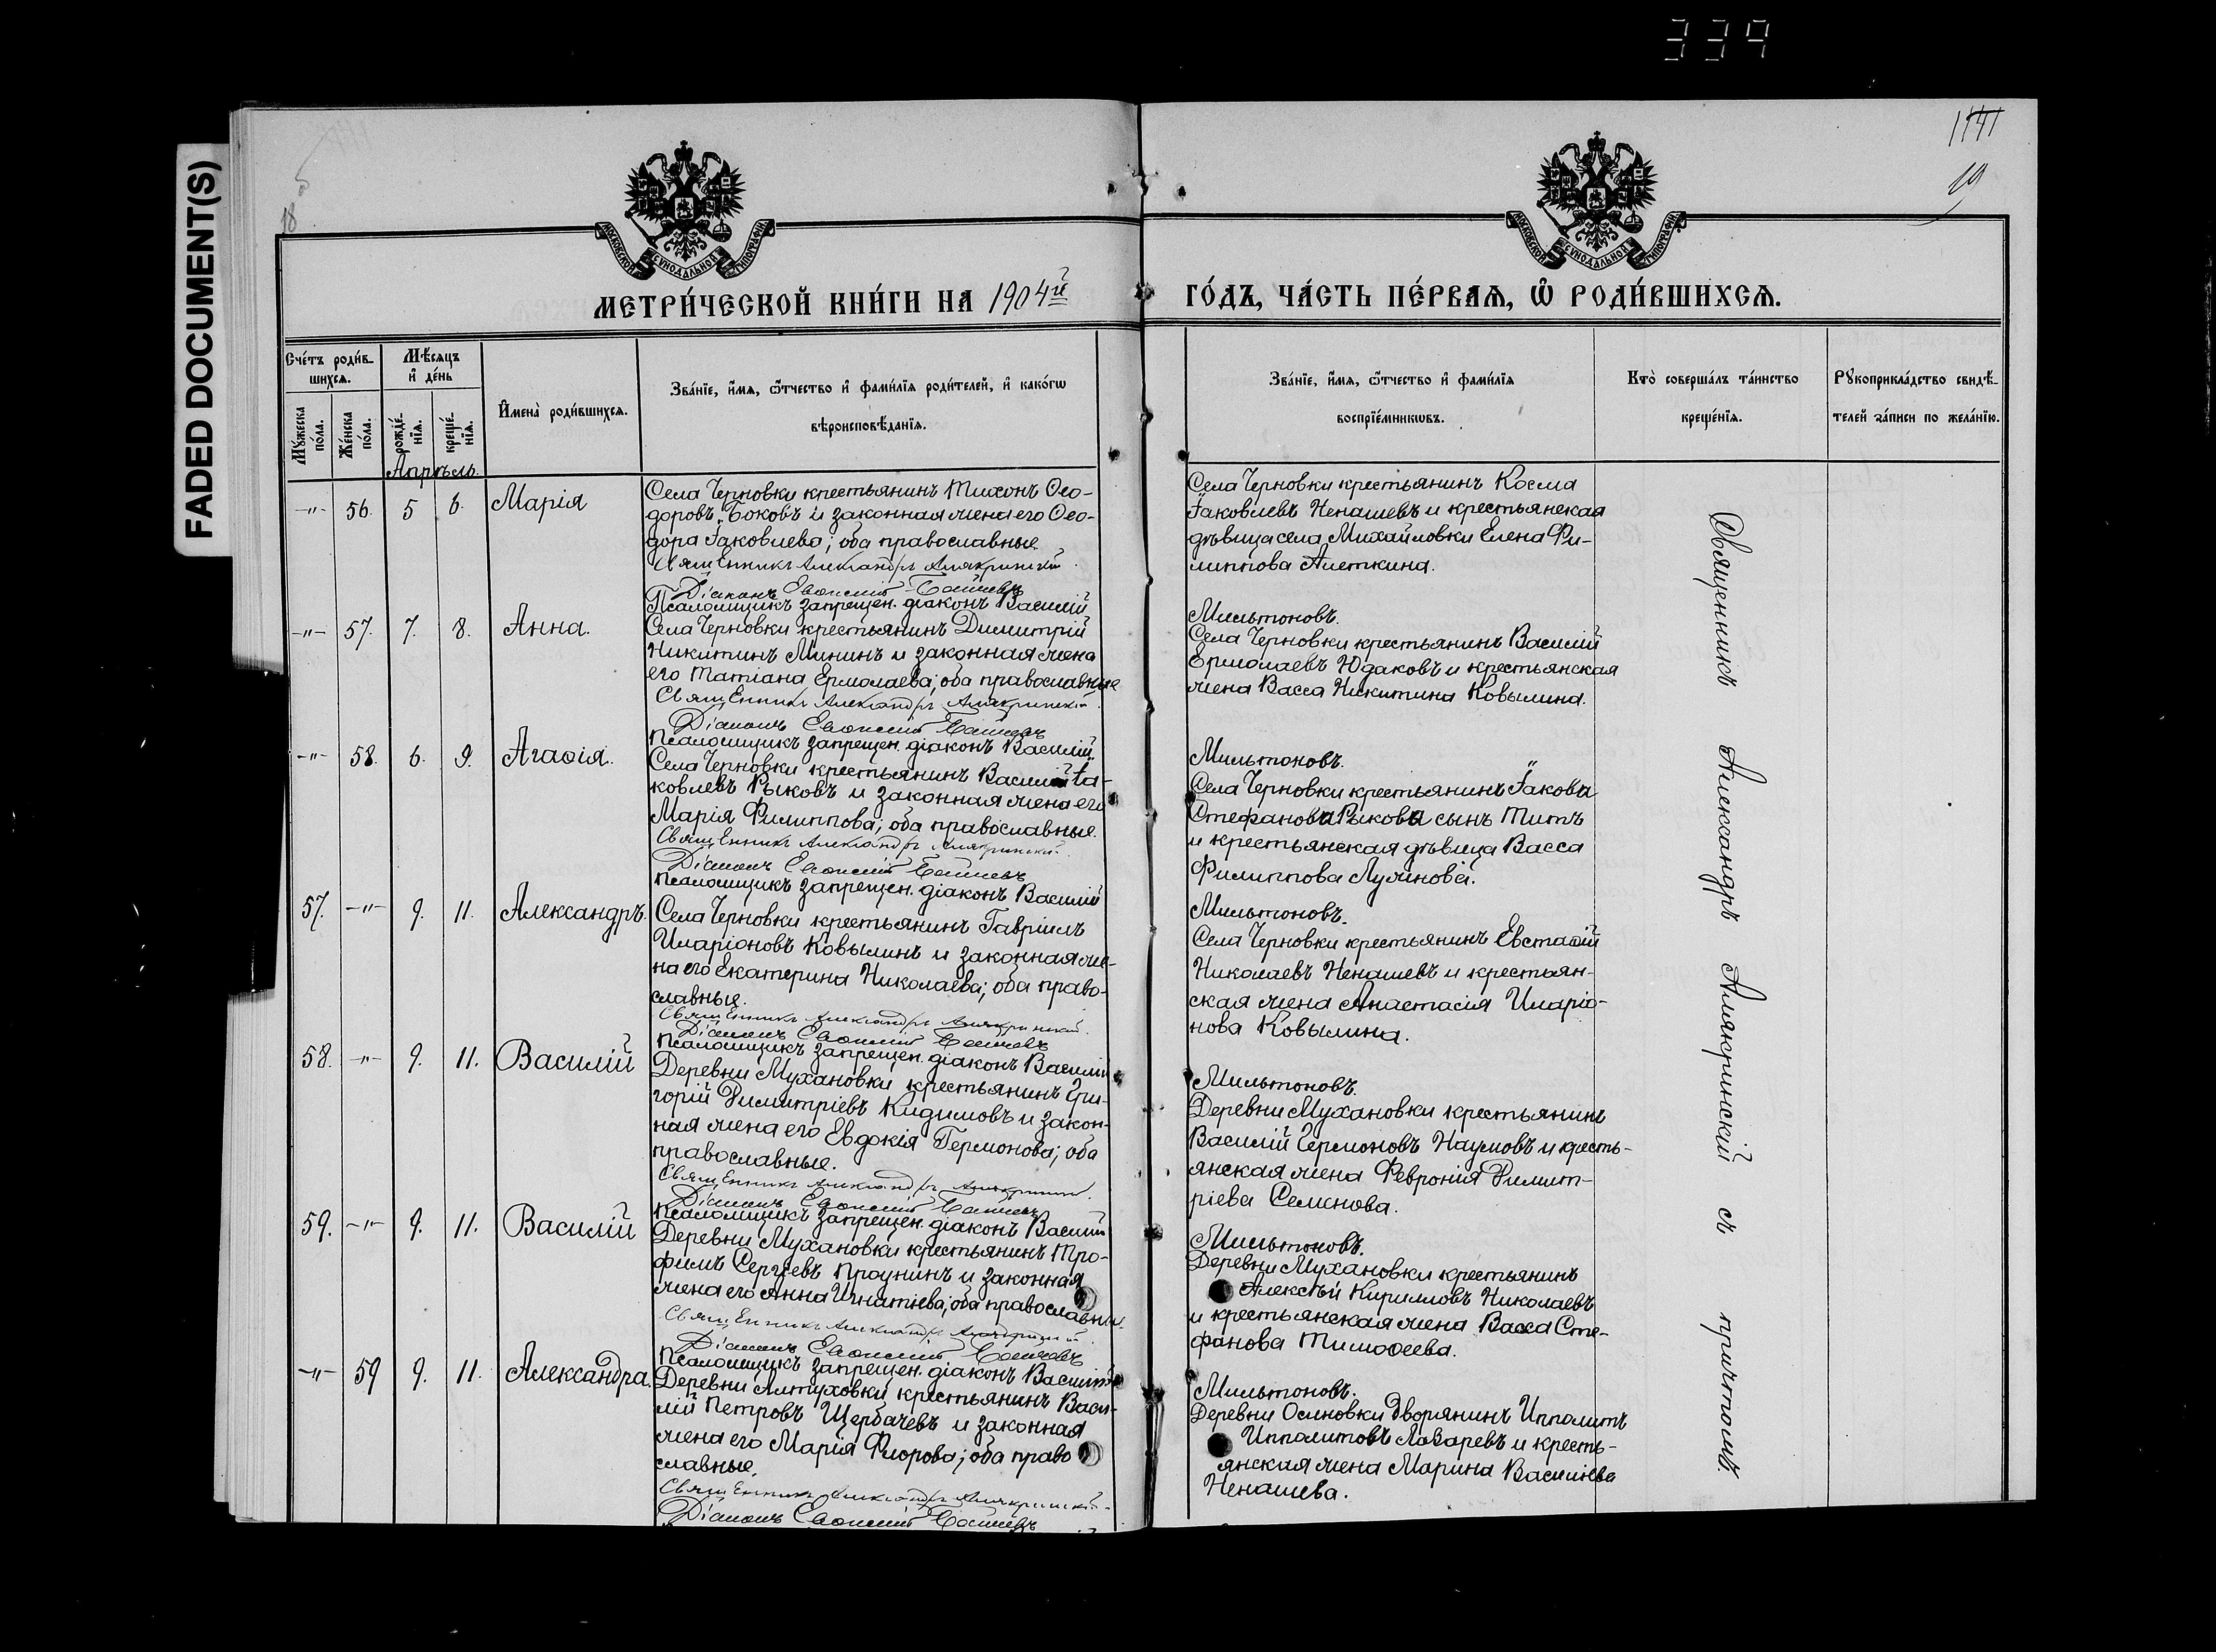 339
FADED DOCUMENT(S)
18
1141
19
МОСКОВСКОЙ СѴНОДАЛЬНОЙ ТИПОГРАФІИ
МОСКОВСКОЙ СѴНОДАЛЬНОЙ ТИПОГРАФІИ
МЕТРИ́ЧЕСКОЙ КНИ́ГИ НА 1904й
ГО́ДЪ, ЧА́СТЬ ПЕ́РВАѦ, Ѡ҆ РОДИ́ВШИХСѦ.
Сче́тъ роди́в-
шихсѧ.
Мꙋ́жеска по́ла.
Же́нска по́ла.
Мѣ́сяцъ
и҆ де́нь
рожде́-нїѧ.
креще́-нїѧ.
И҆мена̀ роди́вшихсѧ.
Зва́нїе, и҆́мѧ, ѻ҆́тчество и҆ фами́лїѧ роди́телей, и҆ како́гѡ
вѣроисповѣ́данїѧ.
Зва́нїе, и҆́мѧ, ѻ҆́тчество и҆ фами́лїѧ
воспрїе́мникѡвъ.
Кто̀ соверша́лъ та́инство
креще́нїѧ.
Рꙋкоприкла́дство свидѣ́-
телей за́писи по жела́нїю.
Апрѣль.
-"- 56. 5 6. Марія
Села Черновки крестьянинъ Тихонъ Ѳео-
доровъ Боковъ и законная жена его Ѳео-
дора Іаковлева; оба православные.
Священникъ Александръ Алякринскій
Діаконъ
Псаломщикъ запрещен. діаконъ Василій
Села Черновки крестьянинъ Косма
Іаковлевъ Ненашевъ и крестьянская
дѣвица села Михайловки Елена Фи-
липпова Алеткина.
Мильтоновъ.
-"- 57. 7. 8. Анна.
Села Черновки крестьянинъ Димитрій
Никитинъ Мининъ и законная жена
его Татіана Ермолаева; оба православные
Священникъ Александръ Алякринскій
Діаконъ
Псаломщикъ запрещен. діаконъ Василій
Села Черновки крестьянинъ Василій
Ермолаевъ Юдаковъ и крестьянская
жена Васса Никитина Ковылина.
Мильтоновъ.
-"- 58. 6. 9. Агаѳія.
Села Черновки крестьянинъ Василій Іа-
ковлевъ Рыковъ и законная жена его
Марія Филиппова; оба православные.
Священникъ Александръ Алякринскій
Діаконъ
Псаломщикъ запрещен. діаконъ Василій
Села Черновки крестьянинъ Іакова
Стефанова Рыкова сынъ Титъ
и крестьянская дѣвица Васса
Филиппова
Мильтоновъ.
57. -"- 9. 11. Александръ.
Села Черновки крестьянинъ Гавріилъ
Иларіоновъ Ковылинъ и законная же-
на его Екатерина Николаева; оба право-
славные.
Священникъ Александръ Алякринскій.
Діаконъ
Псаломщикъ запрещен. діаконъ Василій
Села Черновки крестьянинъ Евстаѳій
Николаевъ Ненашевъ и крестьян-
ская жена Анастасія Иларіо-
нова Ковылина.
Мильтоновъ.
58. -"- 9. 11. Василій
Деревни Мухановки крестьянинъ Гри-
горій Димитріевъ Кидимовъ и закон-
ная жена его Евдокія Гермонова; оба
православные.
Священникъ Александръ Алякринскій.
Діаконъ
Псаломщикъ запрещен. діаконъ Василій
Деревни Мухановки крестьянинъ
Василій Гермоновъ Наумовъ и кресть-
янская жена Февронія Димит-
ріева Семенова.
Мильтоновъ.
59. -"- 9. 11. Василій
Деревни Мухановки крестьянинъ Тро-
фимъ Сергѣевъ Проунинъ и законная
жена его Анна Игнатіева; оба православные.
Священникъ Александръ Алякринскій
Діаконъ
Псаломщикъ запрещен. діаконъ Василій
Деревни Мухановки крестьянинъ
Алексѣй Кирилловъ Николаевъ
и крестьянская жена Васса Сте-
фанова Тимоѳеева.
Мильтоновъ.
-"- 59 9. 11. Александра.
Деревни Алтуховки крестьянинъ Васи-
лій Петровъ Щербачевъ и законная
жена его Марія Флорова; оба право
славные.
Священникъ Александръ Алякринскій
Діаконъ
Деревни Осиновки Дворянинъ Ипполитъ
Ипполитовъ Лазаревъ и кресть-
янская жена Марина Василіева
Ненашева.
Священникъ Александръ Алякринскій съ причтомъ.